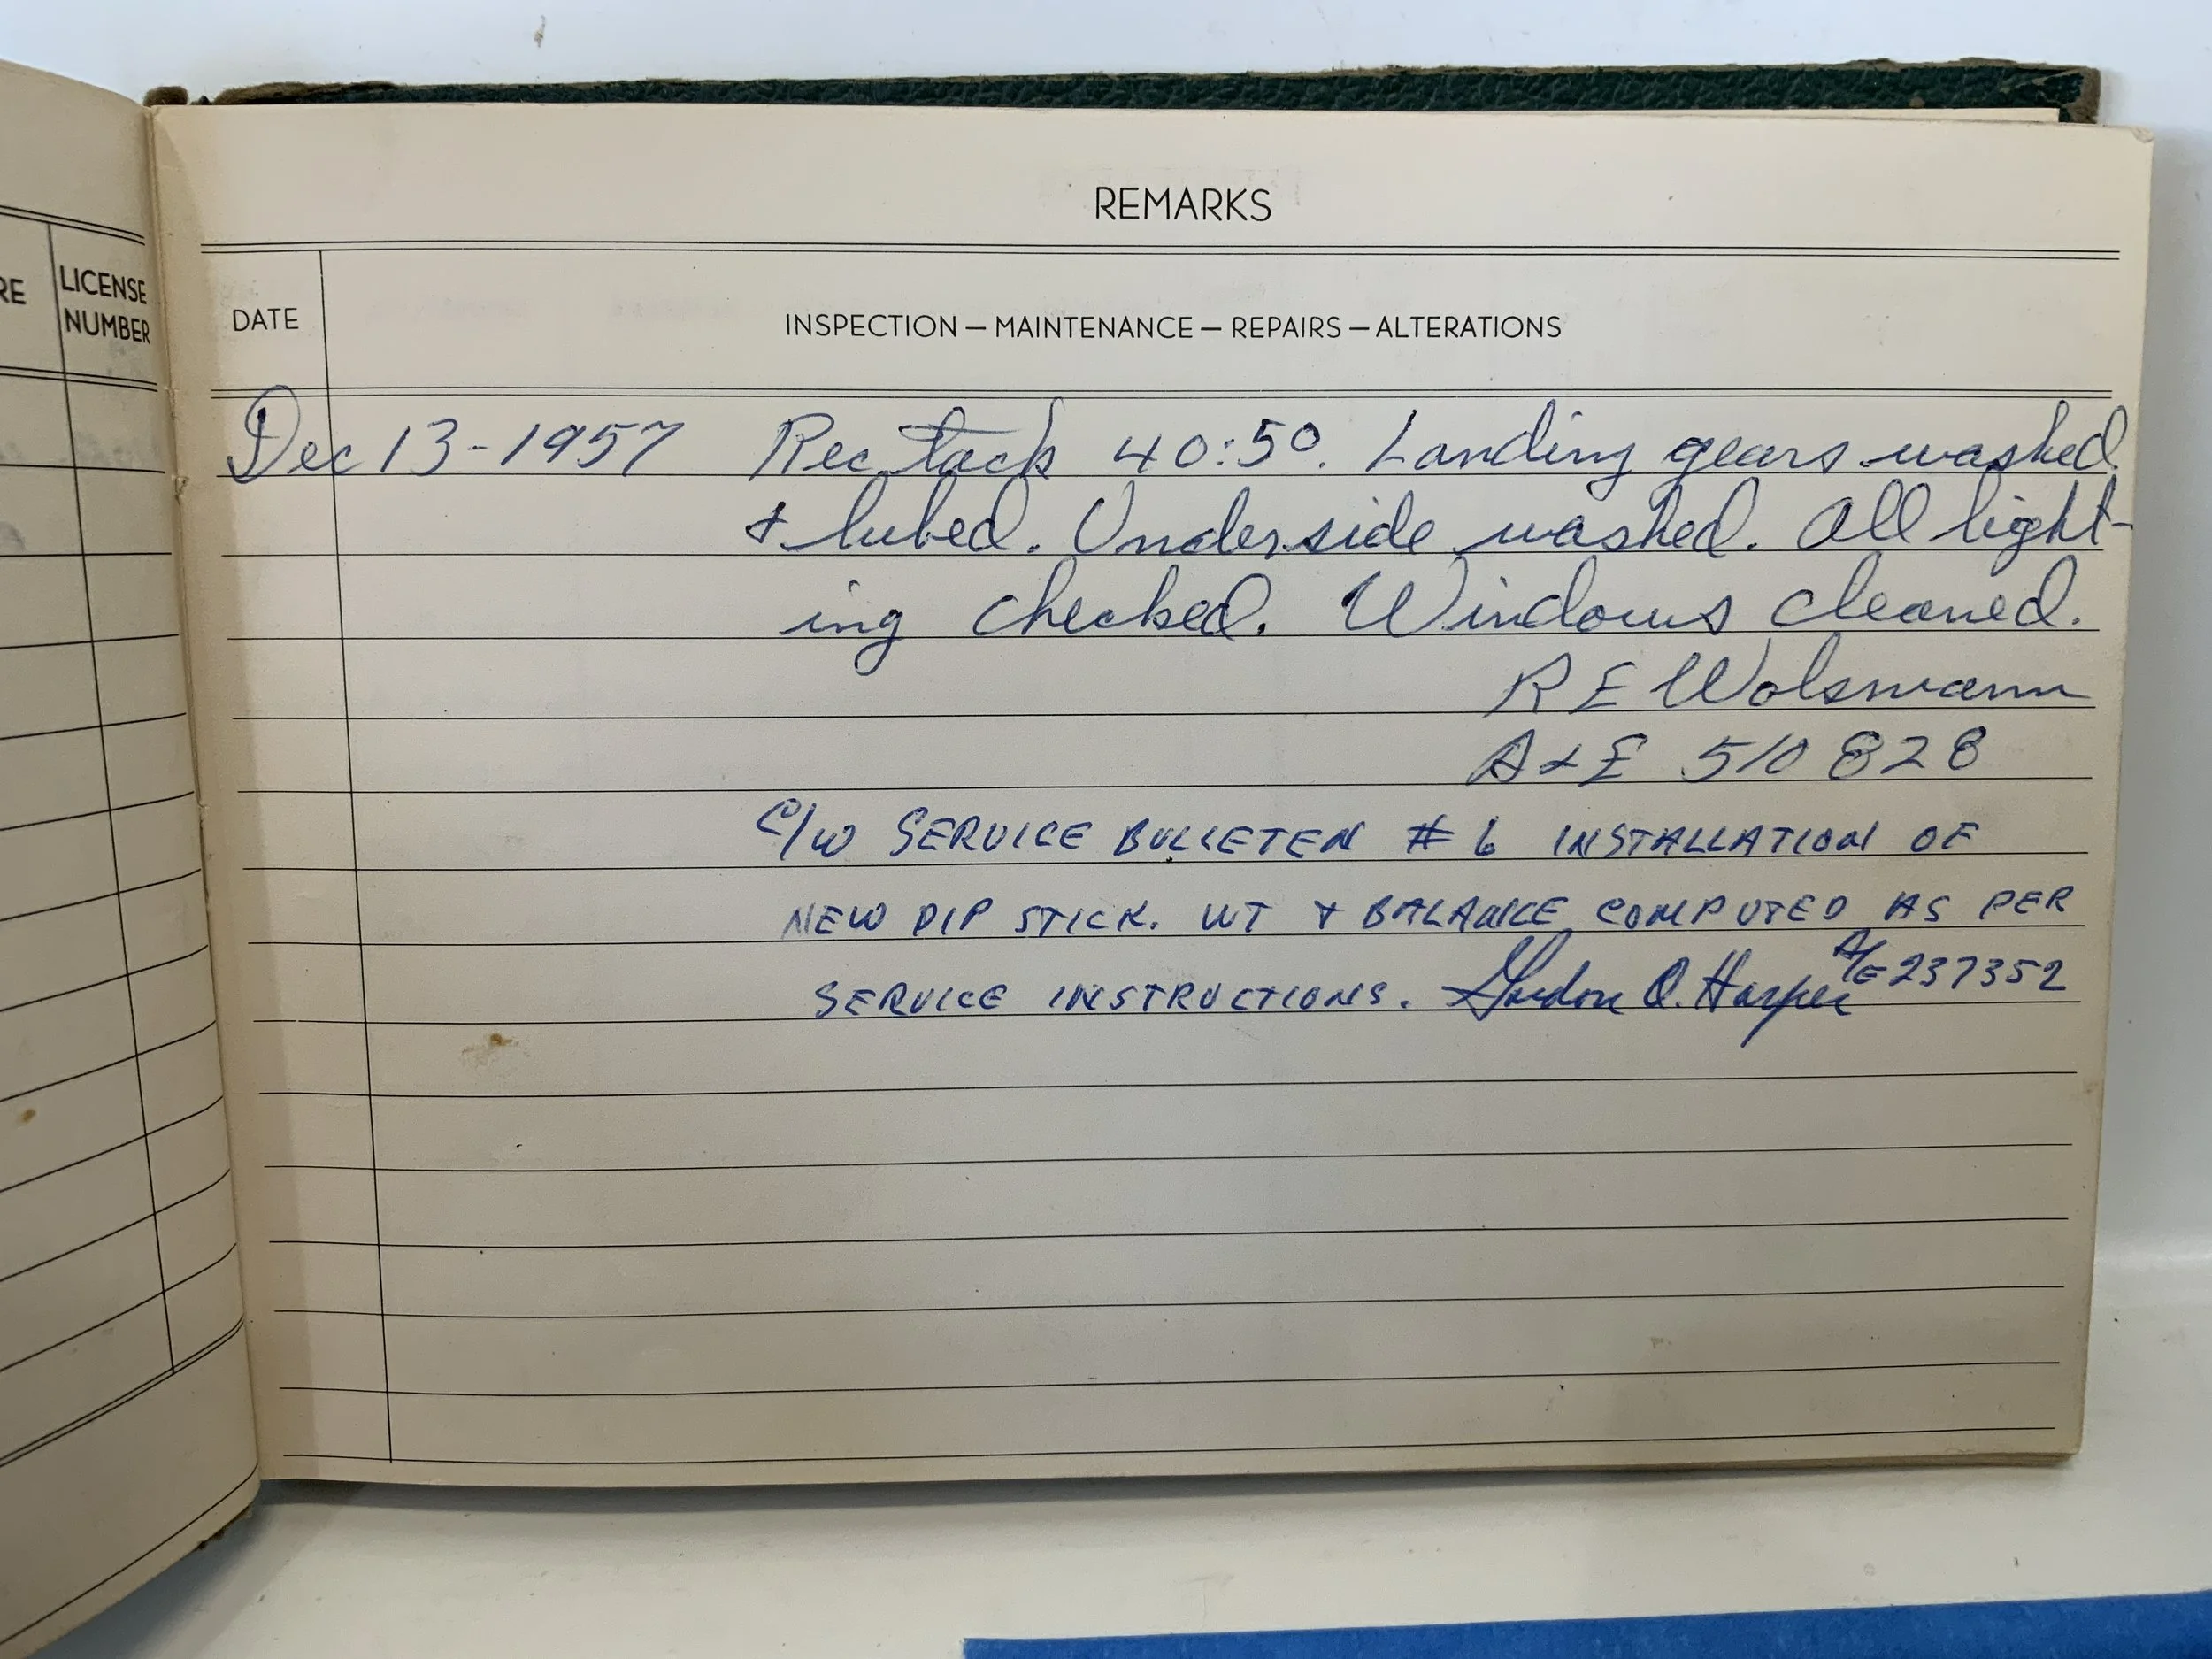 RE
LICENSE
NUMBER
REMARKS
DATE
INSPECTION — MAINTENANCE — REPAIRS — ALTERATIONS
Dec 13-1957 Rec. tach 40:50. Landing gears washed
+ lubed. Underside washed. All light-
ing checked. Windows cleaned.
R E Wolsmann
A & E 510828
C/W SERVICE BULLETEN # 6 INSTALLATION OF
NEW DIP STICK. WT & BALANCE COMPUTED AS PER
SERVICE INSTRUCTIONS. Gordon O. Harper A/E 237352